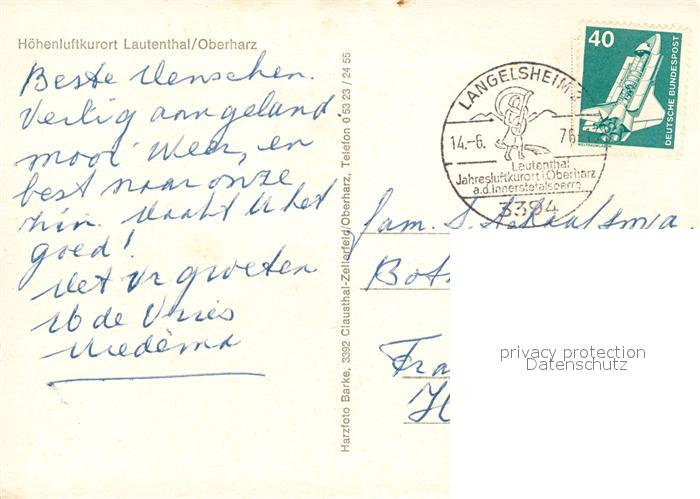 Höhenluftkurort Lautenthal/Oberharz
Beste Menschen.
Veilig aangeland.
mooi Weer, en
best naar onze
zin. Maakt U het
goed!
Met Vr groeten
Ab de Vries
Miedema
Harzfoto Barke, 3392 Clausthal-Zellerfeld/Oberharz, Telefon 0 53 23 / 24 55
LANGELSHEIM
14.-6. 76
Lautenthal
Jahresluftkurort i. Oberharz
a.d. Innerstetalsperre
3394
40
DEUTSCHE BUNDESPOST
WELTRAUMLABOR
fam. S.
Bot
Fra
privacy protection
Datenschutz